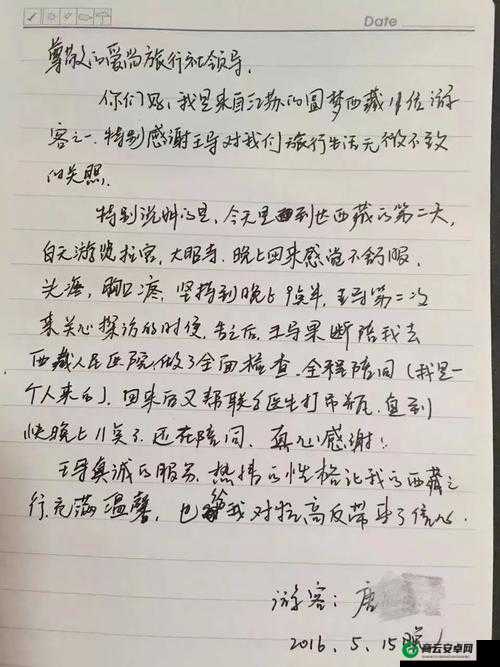 Date
尊敬的爱尚旅行社领导.
你们好,我是来自江苏的圆梦西藏18位游
客之一.特别感谢王导对我们旅行生活无微不致
的关照.
特别说明的是,今天是到达西藏的第二天,
白天游览拉宫,大昭寺.晚上回来感觉不舒服.
头海,胸口疼,坚持到晚上9点半,王导第二次
来关心探访的时候,告之后,王导果断陪我去
西藏人民医院,做了全面检查.全程陪同(我是一
个人来的),回来后又帮联系医生打吊瓶,直到
快晚上11点了还在陪同,真心感谢!
王导真诚的服务,热情的性格让我的西藏之
行充满温馨,也给我对抗高反带来了信心.
游客:唐
2016.5.15晚
商云安卓网